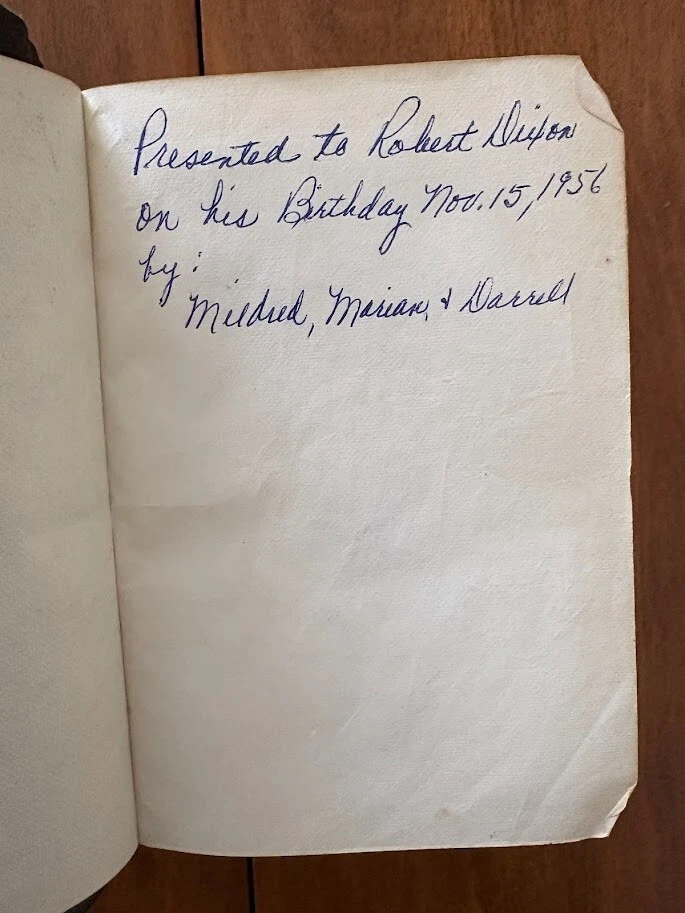 Presented to Robert Dixon
on his Birthday Nov. 15, 1956
by:
Mildred, Marian, & Darrell